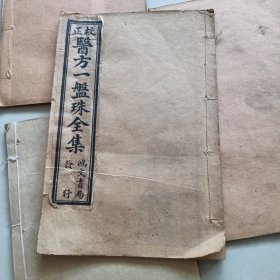 校正
醫方一盤珠全集
鴻文書局
發行